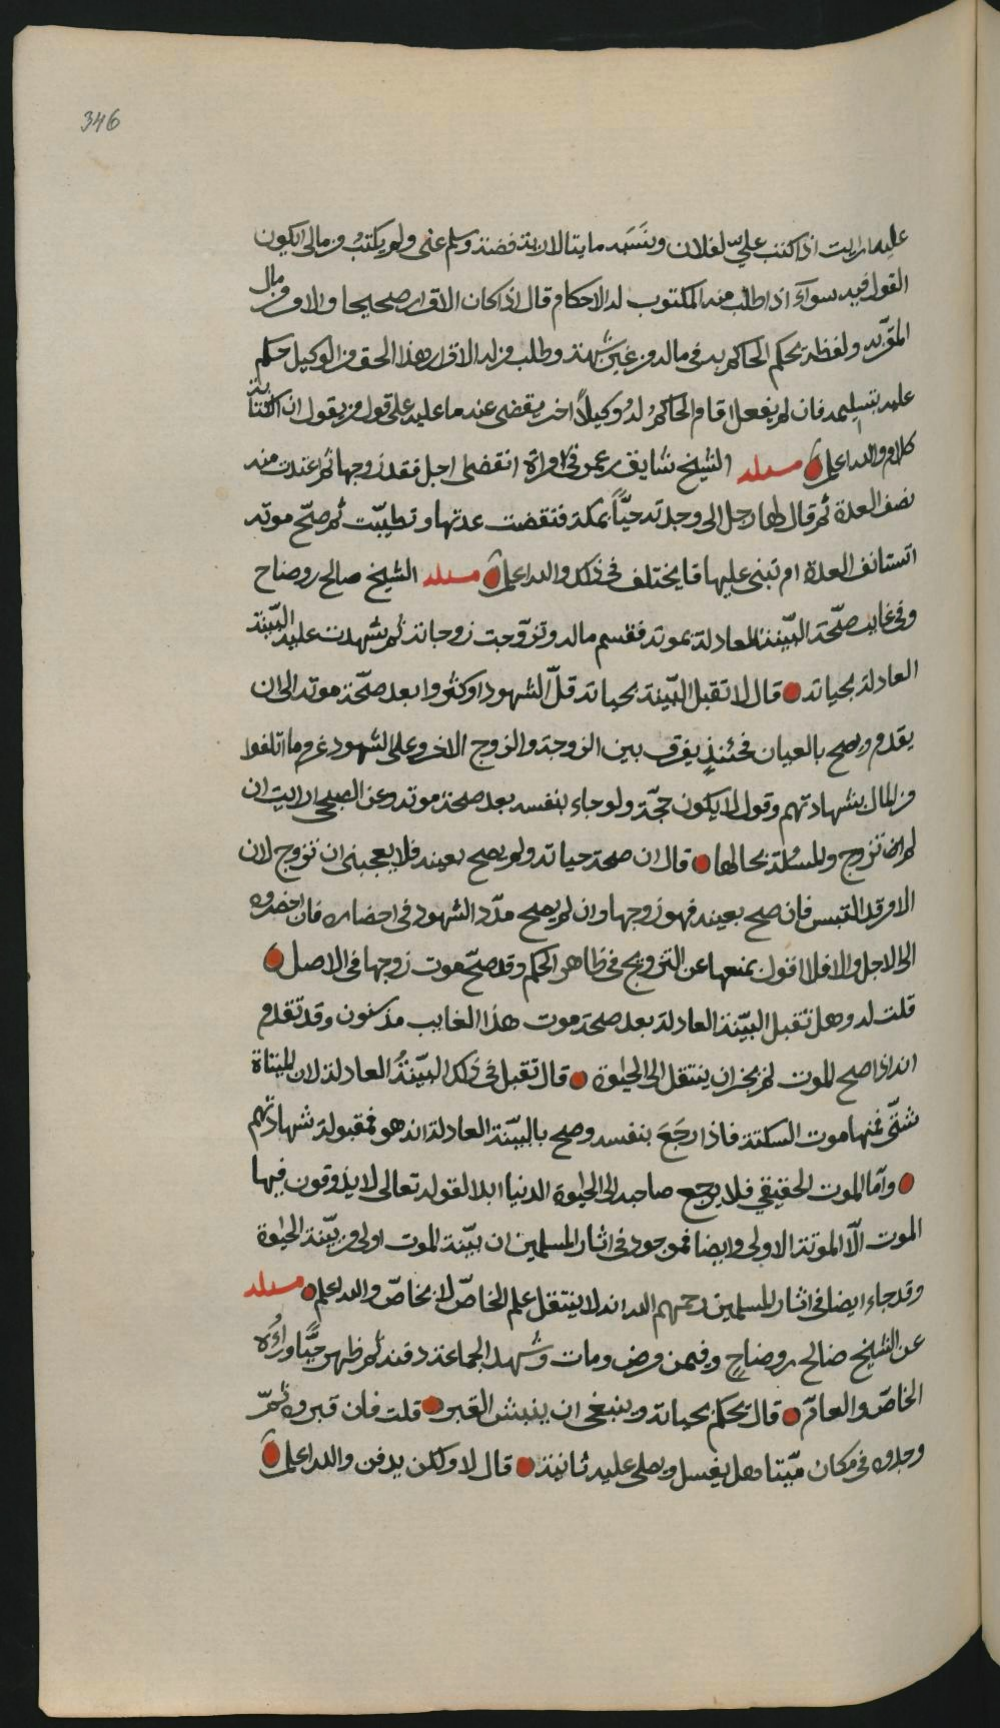 346
عليه ارايت اذا كتب عليّ لفلان ونسَبَه مايتا لارية فضة وسلم عني ولم يكتبْ من مالي ايكون
القول فيه سوآء اذا طلب منه المكتوب له الاحكام قال اذا كان الاقرار صحيحا والامر من مال
المقرّ به ولفظه يحكم الحاكم به في ماله من غير شبهة وطلب من له الاقرار هذا الحق من الوكيل حكم
عليه بتسليمه فان لم يفعل اقام الحاكمُ لهُ وكيلاً اخر يقضي عنه ما عليه على قول من يقول ان الكتابة
كلام والله اعلم مسئله الشيخ شايق بن عمر في امراة انقضى اجل فقد زوجها ثم اعتدت منه
نصف العدة ثم قال لها رجل الى وجدته حيّاً بمكة فنقضت عدتها وتطيبّت ثم صحّ موته
اتستانف العدة ام تبني عليها قا يختلف في ذلك والله اعلم مسئله الشيخ صالح بن وضاح
وفي غايب صحّت البيّنة العادلة بموته فقسم ماله وتزوّجت زوجاته ثم شهدت عليه البيّنة
العادلة بحياته قال لا تقبل البيّنة بحياته قلّ الشهود او كثروا بعد صحّة موته الى ان
يقدم ويصح بالعيان فحئنذٍ يفرق بين الزوجة والزوج الاخر وعلى الشهود غرم ما اتلفوا
من المال بشهادتهم وقول لا يكون حجّة ولو جاء بنفسه بعد صحة موته وعن الصبحي ارايت ان
لم تزوج والمسئلة بحالها قال ان صحت حياته ولم يصح بعينه فلا يعجبني ان تزوج لان
الامر قد التبس فان صح بعينه فهو زوجها وان لم يصح مدّد الشهود في احضاره فان احضروه
الى الاجل والا فلا اقول بمنعها عن التزويج في ظاهر الحكم وقد صحّ موت زوجها في الاصل
قلت له وهل تقبل البيّنة العادلة بعد صحة موت هذا الغايب مذ سنون وقد تقدم
انه اذا صح الموت لم يجز ان ينتقل الى الحيوة قال تقبل في ذلك البيّنةُ العادلة لان الميتاة
شتّى فمنها موت السكتة فاذا رَجَعَ بنفسه وصح بالبيّنة العادلة انه هو فمقبولة شهادتهم
وآما الموت الحقيقي فلا يرجع صاحبه الى الحيوة الدنيا ابدا لقوله تعالى لا يذوقون فيها
الموت الآ الموتة الاولى وايضا فموجود في اثار المسلمين ان بيّنة الموت اولى من بيّنة الحيوة
وقد جاء ايضا في اثار المسلمين رحمهم الله انه لا ينتقل علم الخاصّ لا بخاصّ والله اعلم مسئله
عن الشيخ صالح بن وضاحٍ وفيمن مرض ومات وشهد الجماعة دفنه ثم ظهر حيًّا وراءُه
الخاصّ والعامّ قال يحكم بحياته وينبغي ان ينبش القبر قلت فان قبروه ثمّ
وجدوه في مكان ميّتا هل يغسل ويصلى عليه ثانية قال لا ولكن يدفن والله اعلم